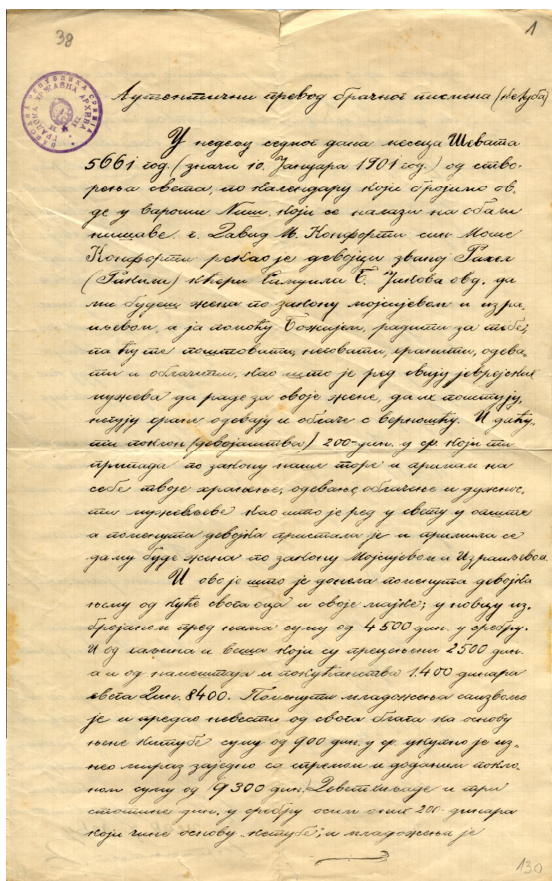 38
1
НАРОДНА РЕПУБЛИКА СРБИЈА
ДРЖАВНА АРХИВА
Аутентични превод брачног писмена (кетуба)
У недељу седмог дана месеца Шевата
5661 год. (значи 10. Јануара 1901 год.) од ство-
рења света, по календару који бројимо ов-
де у вароши Ниш, који се налази на обали
нишаве г. Давид М. Конфорти син Моше
Конфорти рекао је девојци званој Рахел
(Ракили) кћери Самуила Б. Јакова овд. да
ми будеш жена по закону мојсијевом и изра-
иљевом, а ја помоћу Божијом, радити за тебе;
па ћу те поштовати, неговати, хранити, одева-
ти и облачити, као што је ред свију јеврејских
мужева да раде за своје жене, да их поштују,
негују хране одевају и облаче с верношћу. И даћу
ти поклон (девојаштва) 200 дин. у ср. који ти
припада по закону наше торе и примам на
себе твоје храњење, одевање, облачење и дужнос-
ти мужевљеве као што је ред у свету у опште
а поменута девојка пристала је и примила се
да му буде жена по закону Мојсијевом и Израиљевом.
И ово је што је донела поменута девојка
њему од куће свога оца и своје мајке; у новцу из-
бројаном пред нама суму од 4500 дин. у сребру.
И од хаљина и веша који су прецењени 2500 дин.
а и од намештаја и покућанства 1.400 динара
свега Дин. 8400. Поменути младожења саизволео
је и предао невести од свога блага на основу
њене китубе суму од 900 дин. у ср. укупно је из-
нео мираз заједно са спремом и доданим покло-
ном суму од 9300 дин. Девет хиљаде и три
стотине дин. у сребру осим оних 200 динара
који чине основу „кетубе“, и младожења је
130